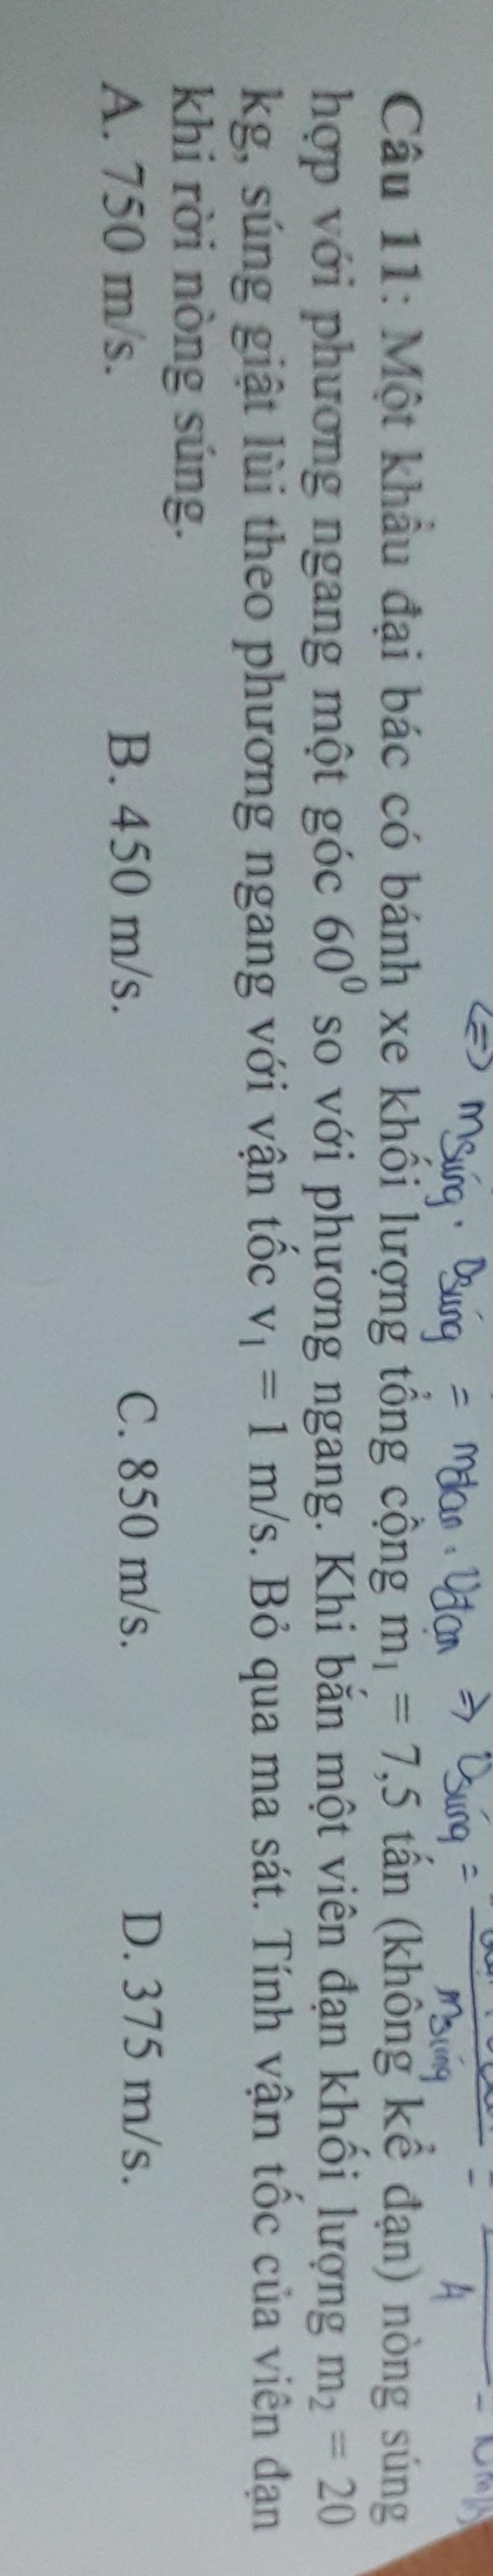 (=) m súng . v súng = m đạn . v đạn => v súng =
m súng
Câu 11: Một khẩu đại bác có bánh xe khối lượng tổng cộng m₁ = 7,5 tấn (không kể đạn) nòng súng
hợp với phương ngang một góc 60⁰ so với phương ngang. Khi bắn một viên đạn khối lượng m₂ = 20
kg, súng giật lùi theo phương ngang với vận tốc v₁ = 1 m/s. Bỏ qua ma sát. Tính vận tốc của viên đạn
khi rời nòng súng.
A. 750 m/s. B. 450 m/s. C. 850 m/s. D. 375 m/s.